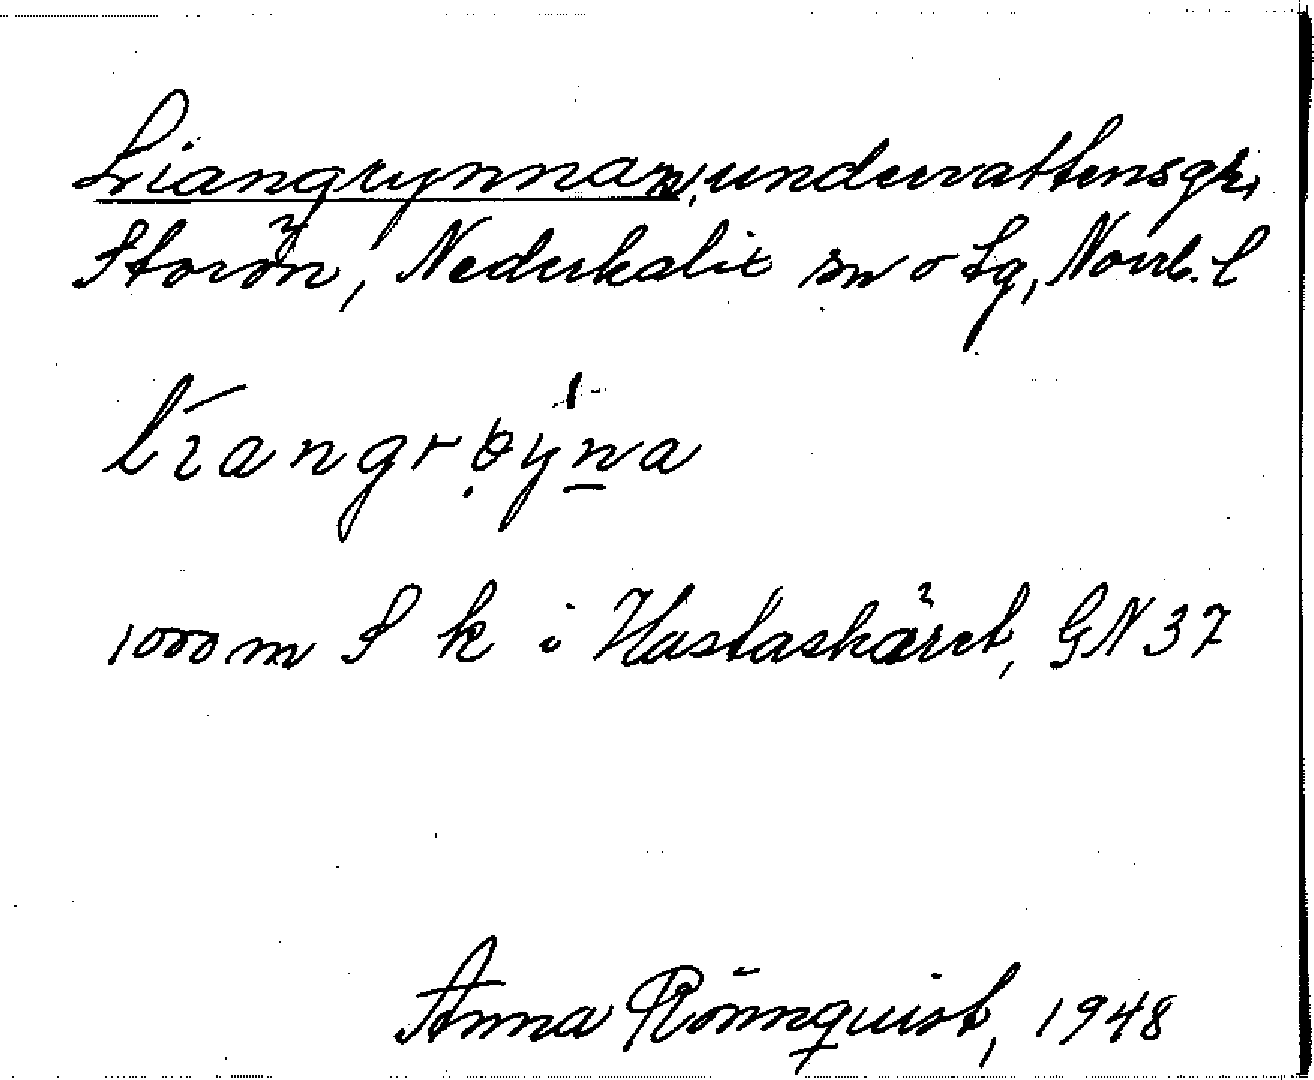 Liangrynnan, undervattensgr,
Storön, Nederkalix sn o tg, Norrb. l
1000 m S k i Hastaskäret, GN 37
Anna Rönnquist, 1948